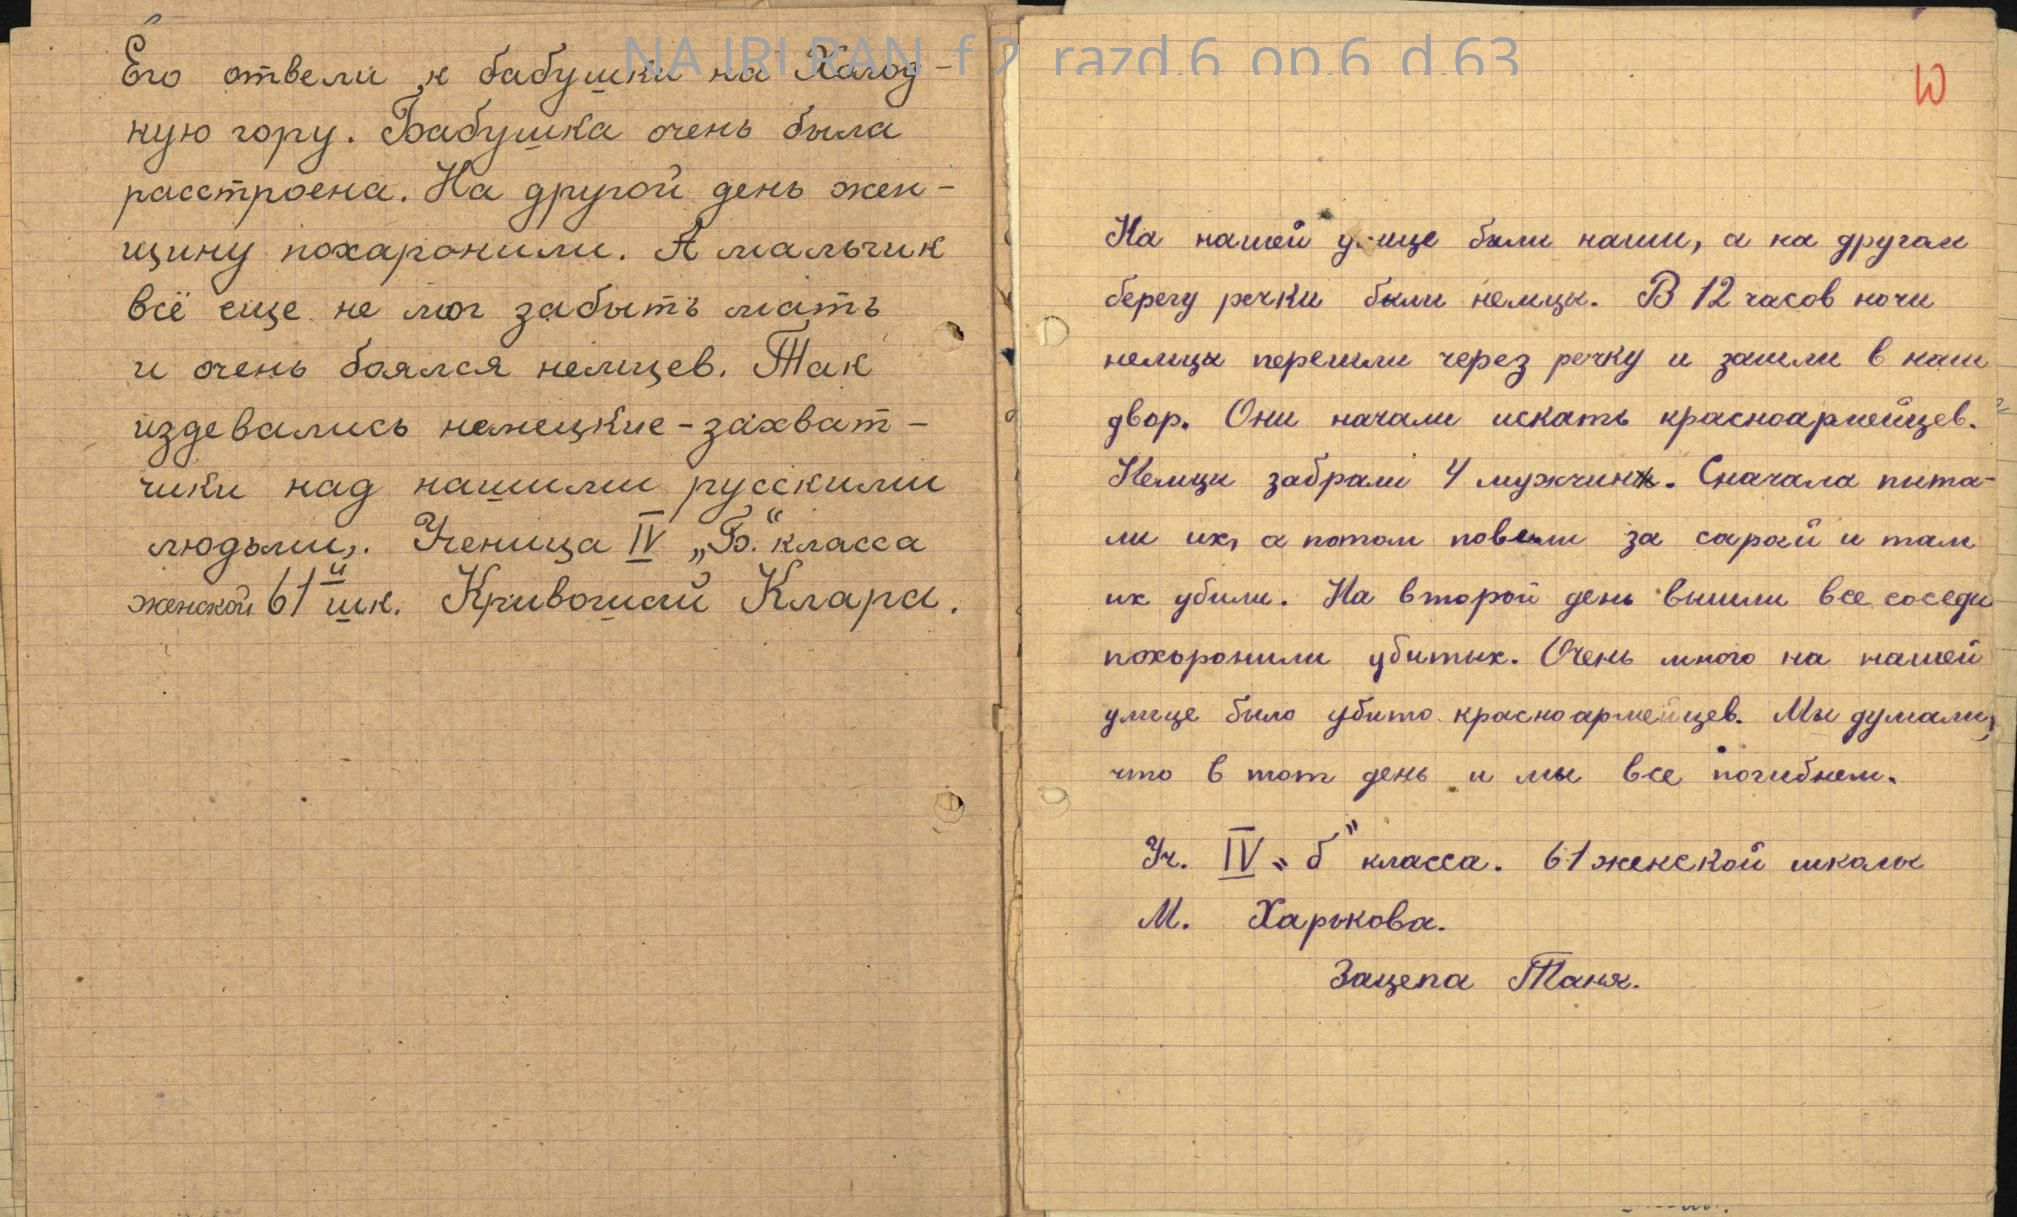 NA IRI RAN f.2 razd.6 op.6 d.63
Его отвели к бабушки на Холод-
ную гору. Бабушка очень была
расстроена. На другой день жен-
щину похаронили. А мальчик
всё еще не мог забыть мать
и очень боялся немцев. Так
издевались немецкие-захват-
чики над нашими русскими
людьми,. Ученица IV „Б." класса
женской 61й шк. Кривошай Клара.
10
На нашей улице были наши, а на другом
берегу речки были немцы. В 12 часов ночи
немцы перешли через речку и зашли в наш
двор. Они начали искать красноармейцев.
Немцы забрали 4 мужчин. Сначала пыта-
ли их, а потом повели за сарай и там
их убили. На второй день вышли все соседи
похоронили убитых. Очень много на нашей
улице было убито красноармейцев. Мы думали,
что в тот день и мы все погибнем.
Уч. IV „б" класса. 61 женской школы
М. Харькова.
Зацепа Таня.